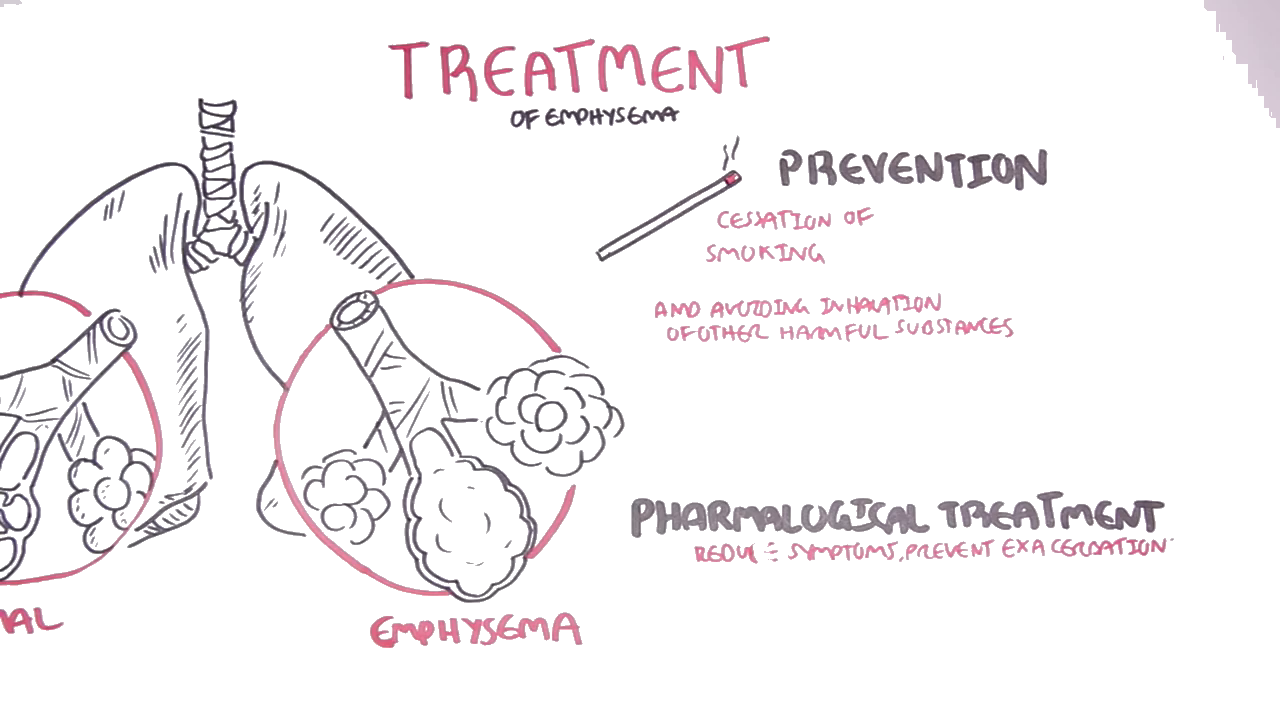 TREATMENT
OF EMPHYSEMA
PREVENTION
CESSATION OF
SMOKING
AND AVOIDING INHALATION
OF OTHER HARMFUL SUBSTANCES
PHARMALOGICAL TREATMENT
REDUCE SYMPTOMS, PREVENT EXACERBATION
MAL
EMPHYSEMA